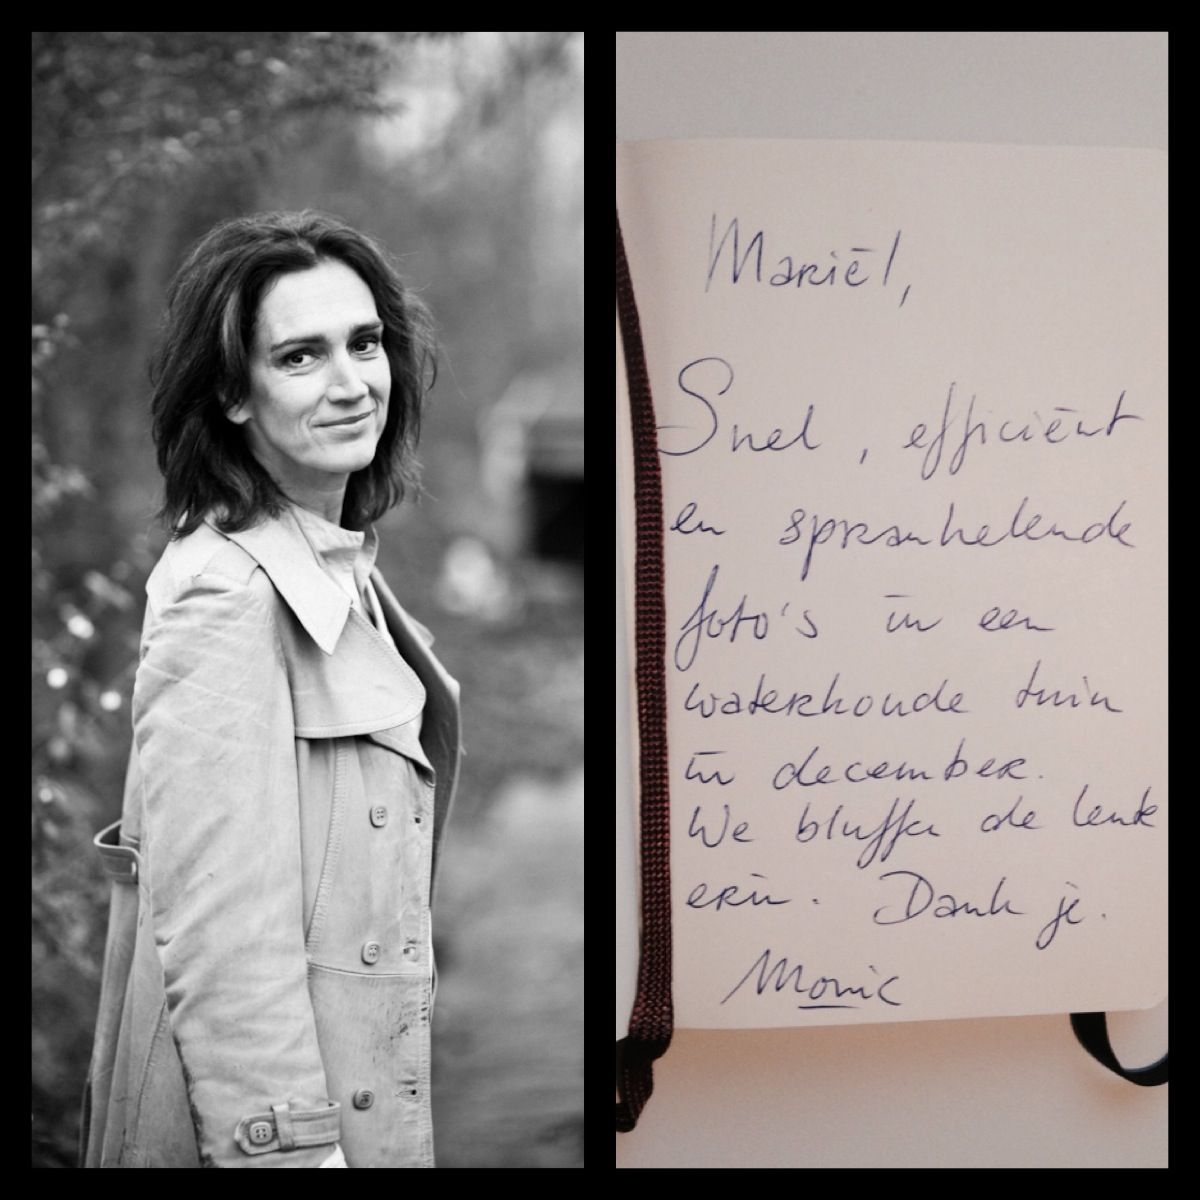 Mariël,
Snel, efficiënt
en sprankelende
foto's in een
waterkoude tuin
in december.
We bluffen de lente
erin. Dank je.
Monic